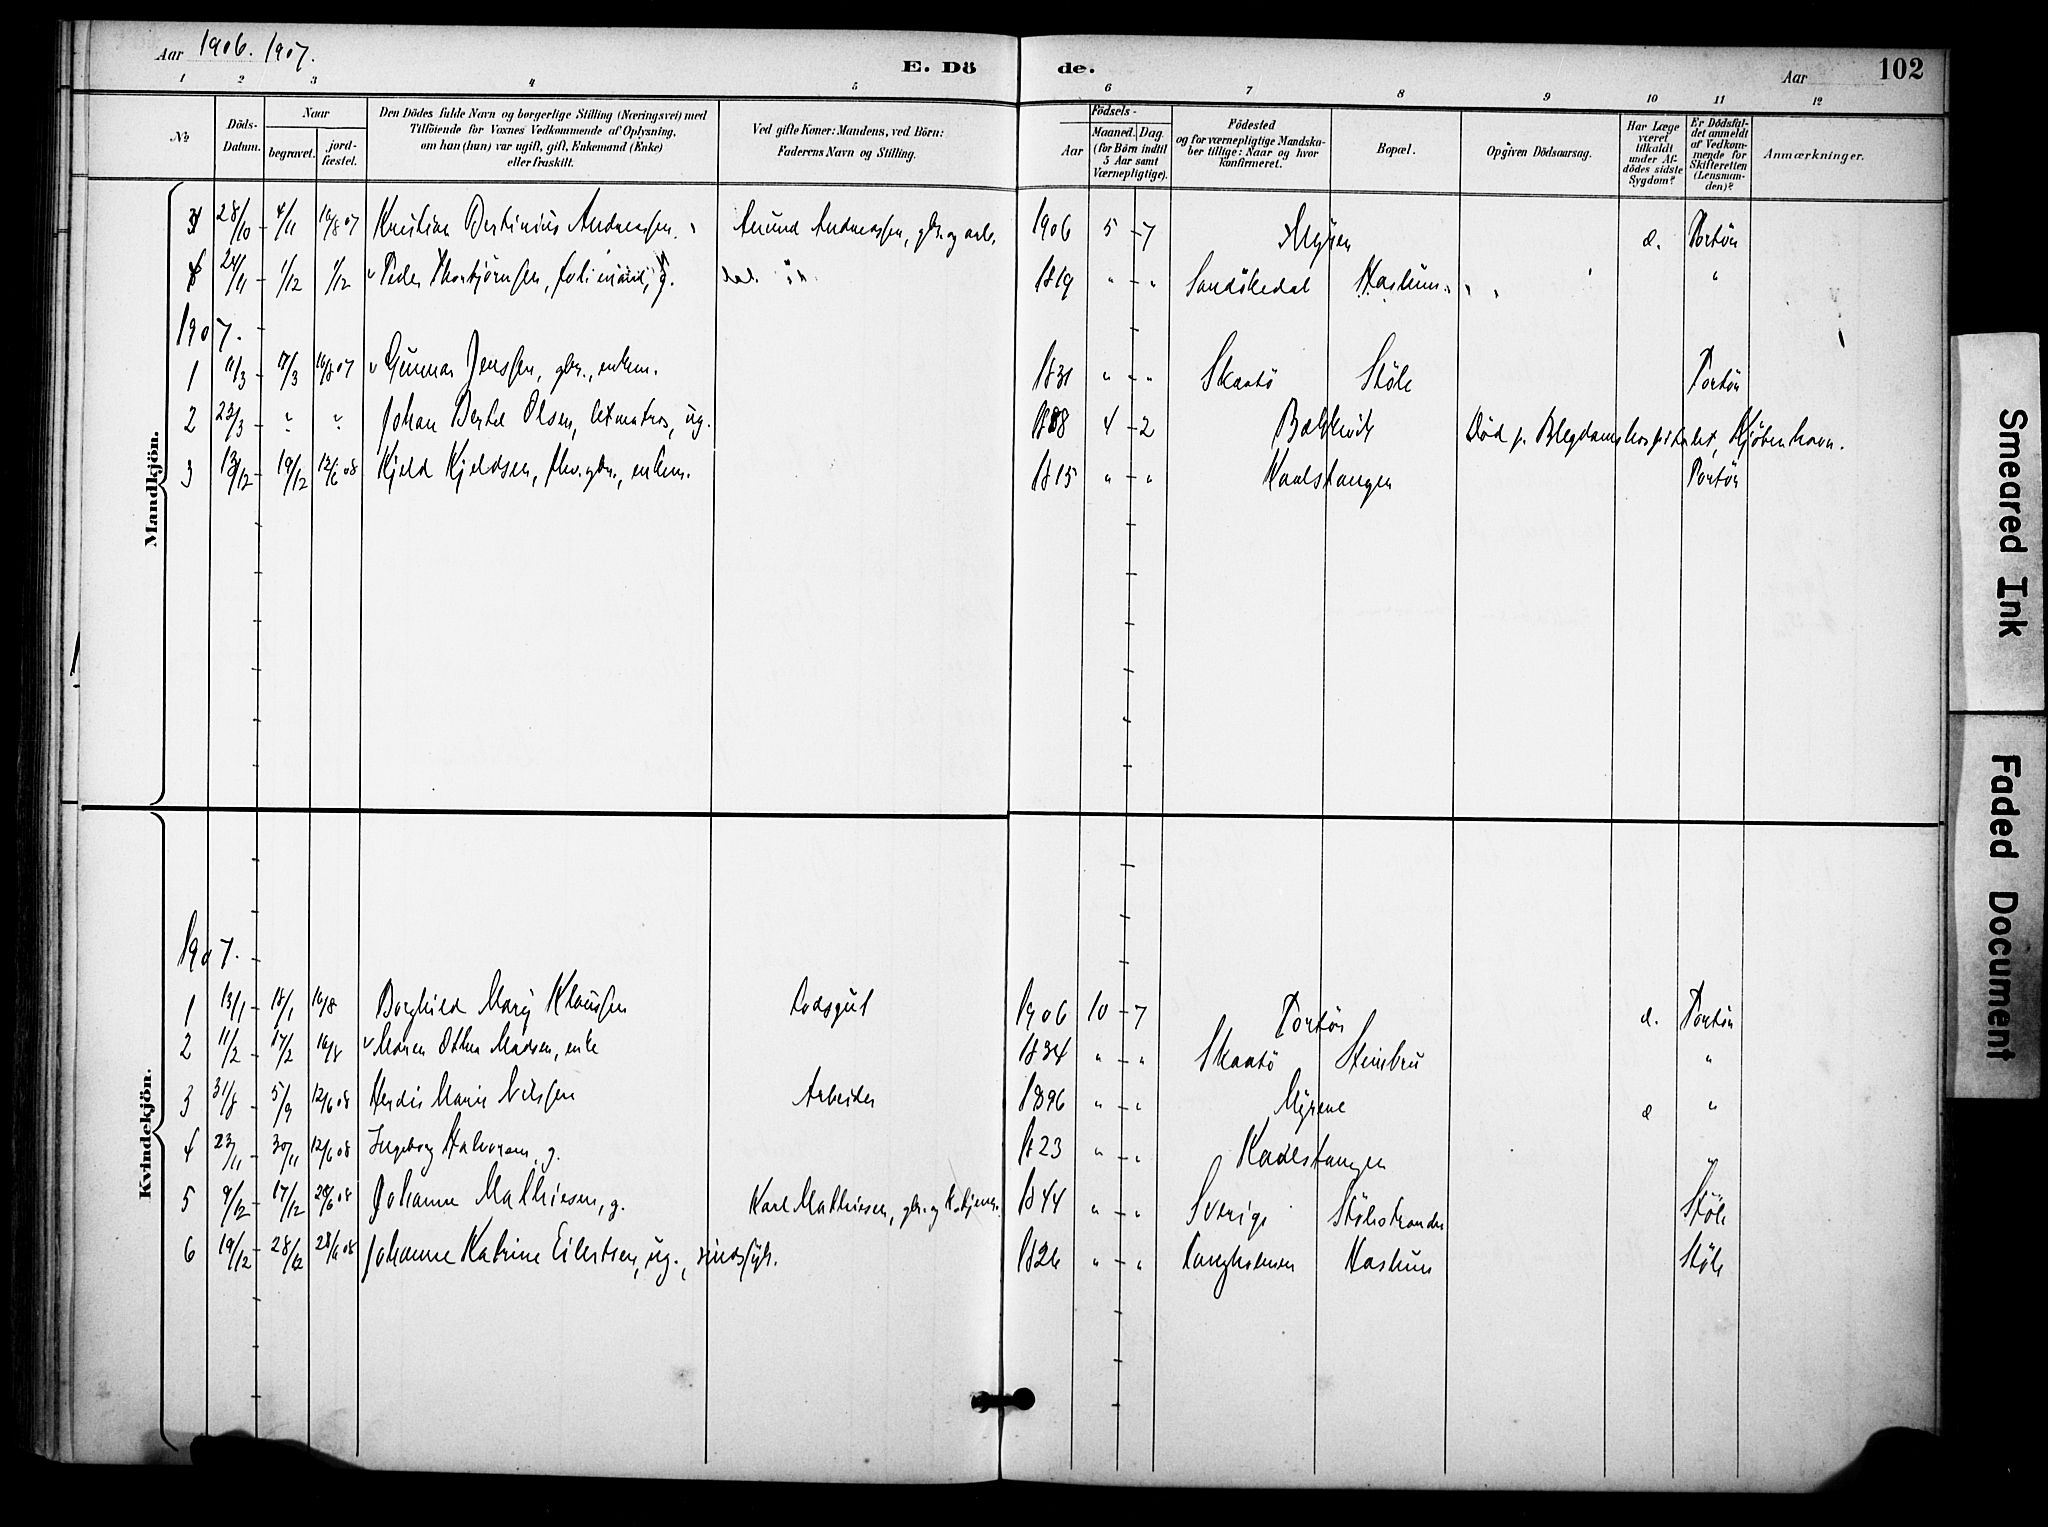 Aar 1906. 1907.
E. Dö de.
Aar 102
1 2 3 4 5 6 7 8 9 10 11 12
No
Döds-Datum.
Naar
begravet.
jord-fæstet.
Den Dödes fulde Navn og borgerlige Stilling (Næringsvei) med Tilföiende for Voxnes Vedkommende af Oplysning, om han (hun) var ugift, gift, Enkemand (Enke) eller fraskilt.
Ved gifte Koner: Mandens, ved Börn: Faderens Navn og Stilling.
Födsels-
Aar
Maaned. Dag.
(for Börn indtil 5 Aar samt Værnepligtige).
Födested og for værnepligtige Mandskaber tillige: Naar og hvor konfirmeret.
Bopæl.
Opgiven Dödsaarsag.
Har Læge været tilkaldt under Afdödes sidste Sygdom?
Er Dödsfaldet anmeldt af Vedkommende for Skifteretten (Lensmanden)?
Anmærkninger.
Mandkjön.
28/10 4/11 16/8 07 Kristian Bertinius Andreassen. Anund Andreassen, gbr. og arb. 1906 5 7 Myren d. Portör
24/11 1/12 1/12 Peder Thorbjörnsen, g. 1819 " " Sandökedal Haslum "
1907.
1 11/3 17/3 16/8 07 Gunnar Jenssen, gbr., enkem. 1831 " " Skaatö Stöle Portör
2 23/3 " " Johan Bertel Olsen, letmatros, ug. 1888 4 2 Död p. Blegdamshospitalet, Kjöbenhavn.
3 13/12 19/12 12/6 08 Kjeld Kjeldsen, fhv. gbr., enkem. 1815 " " Kaalstangen Portör
Kvindekjön.
1907.
1 13/1 18/1 16/8 Borghild Mary Klaussen Lodsgut 1906 10 7 Portör d. Portör
2 11/2 17/2 16/8 Maren Othea Madsen, enke 1834 " " Skaatö Stenbru "
3 31/8 5/9 12/6 08 Herdis Marie Nilssen Arbeider 1896 " " Myrene d "
4 23/11 30/11 12/6 08 Ingeborg Halvorsen, g. 1823 " " Kaalstangen "
5 9/12 17/12 28/6 08 Johanne Mathiesen, g. Karl Mathiesen, gbr. og 1844 " " Sverige Stölestranden Stöle
6 19/12 28/12 28/6 08 Johanne Katrine Eilertsen, ug., sindssyk. 1826 " " Langholmen Haslum Stöle
Smeared Ink
Faded Document